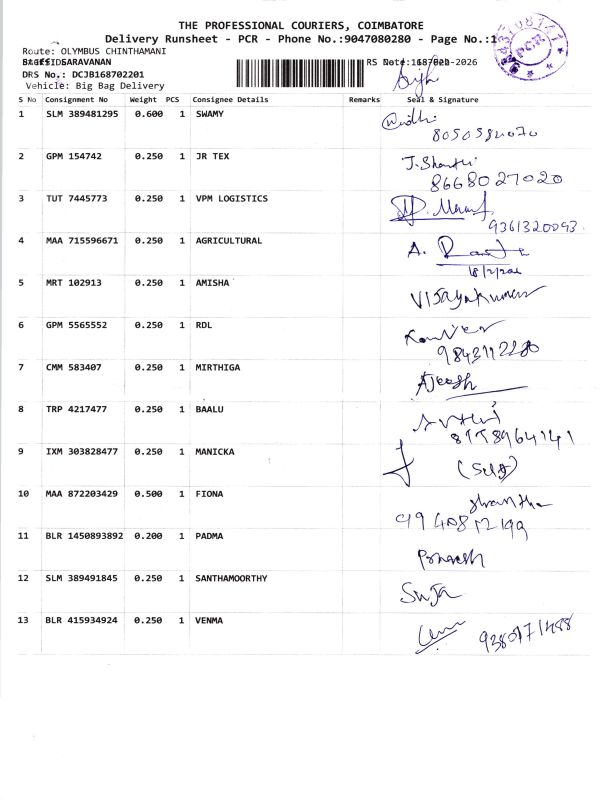 THE PROFESSIONAL COURIERS, COIMBATORE
Delivery Runsheet - PCR - Phone No.:9047080280 - Page No.:1
Route: OLYMBUS CHINTHAMANI
SARAVANAN
DRS No.: DCJB168702201
Vehicle: Big Bag Delivery
PCR
S No Consignment No Weight PCS Consignee Details Remarks Seal & Signature
1 SLM 389481295 0.600 1 SWAMY
2 GPM 154742 0.250 1 JR TEX J. Shanthi
8668027020
3 TUT 7445773 0.250 1 VPM LOGISTICS
9361320093
4 MAA 715596671 0.250 1 AGRICULTURAL A.
5 MRT 102913 0.250 1 AMISHA Vijayakumar
6 GPM 5565552 0.250 1 RDL
7 CMM 583407 0.250 1 MIRTHIGA Ajeesh
8 TRP 4217477 0.250 1 BAALU
9 IXM 303828477 0.250 1 MANICKA (Self)
10 MAA 872203429 0.500 1 FIONA
11 BLR 1450893892 0.200 1 PADMA
12 SLM 389491845 0.250 1 SANTHAMOORTHY Suja
13 BLR 415934924 0.250 1 VENMA